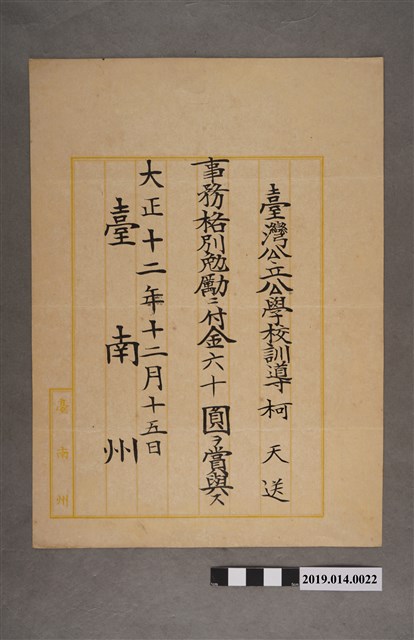 臺灣公立公學校訓導柯天送
事務格別勉勵ニ付金六十圓ヲ賞與ス
大正十二年十二月十五日
臺南州
臺南州
2019.014.0022